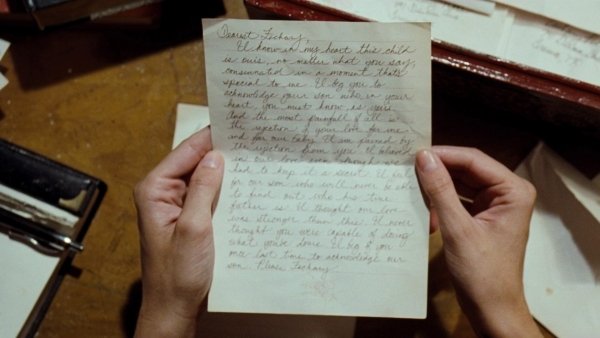 Dearest Zachary,
I know in my heart this child
is ours, no matter what you say,
consumated in a moment that's
special to me. I beg you to
acknowledge your son when in your
heart, you must know, as yours.
And the most painfull of all is
the rejection of your love for me
and for our baby. I am pained by
the rejection from you. I believed
in our love even though we
had to keep it a secret. I pity
for our son who will never be able
to find out who his true
father is. I thought our love
was stronger than this. I never
thought you were capable of doing
what you've done. I beg of you
one last time to acknowledge our
son. Please Zachary.